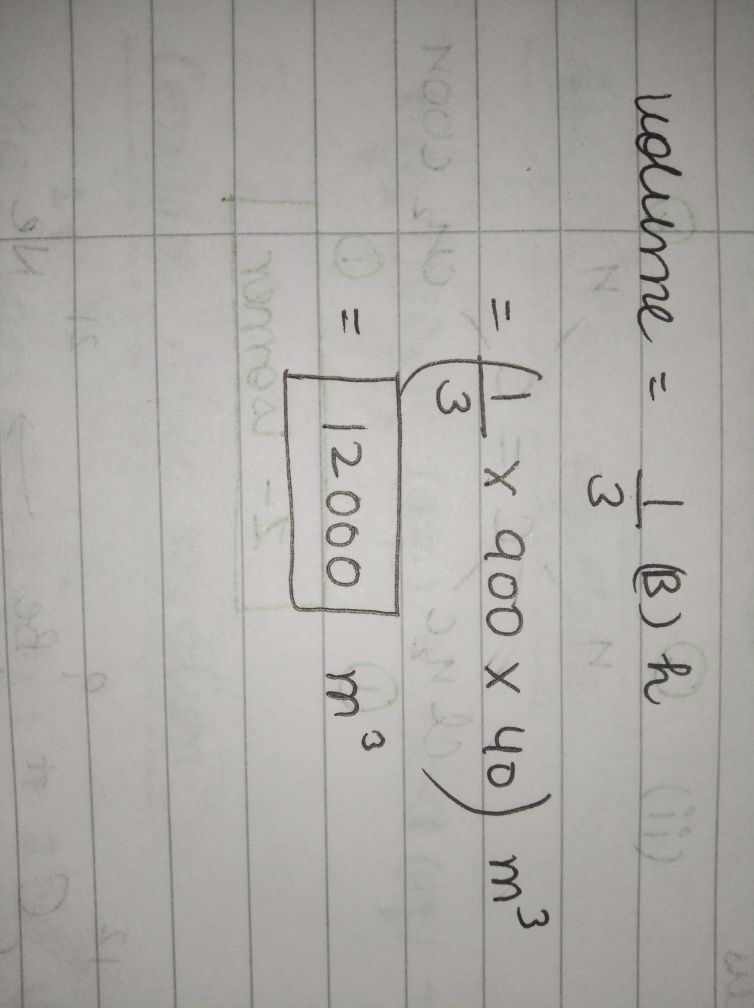 volume = 1/3 (B) h
= (1/3 x 900 x 40) m³
= 12000 m³